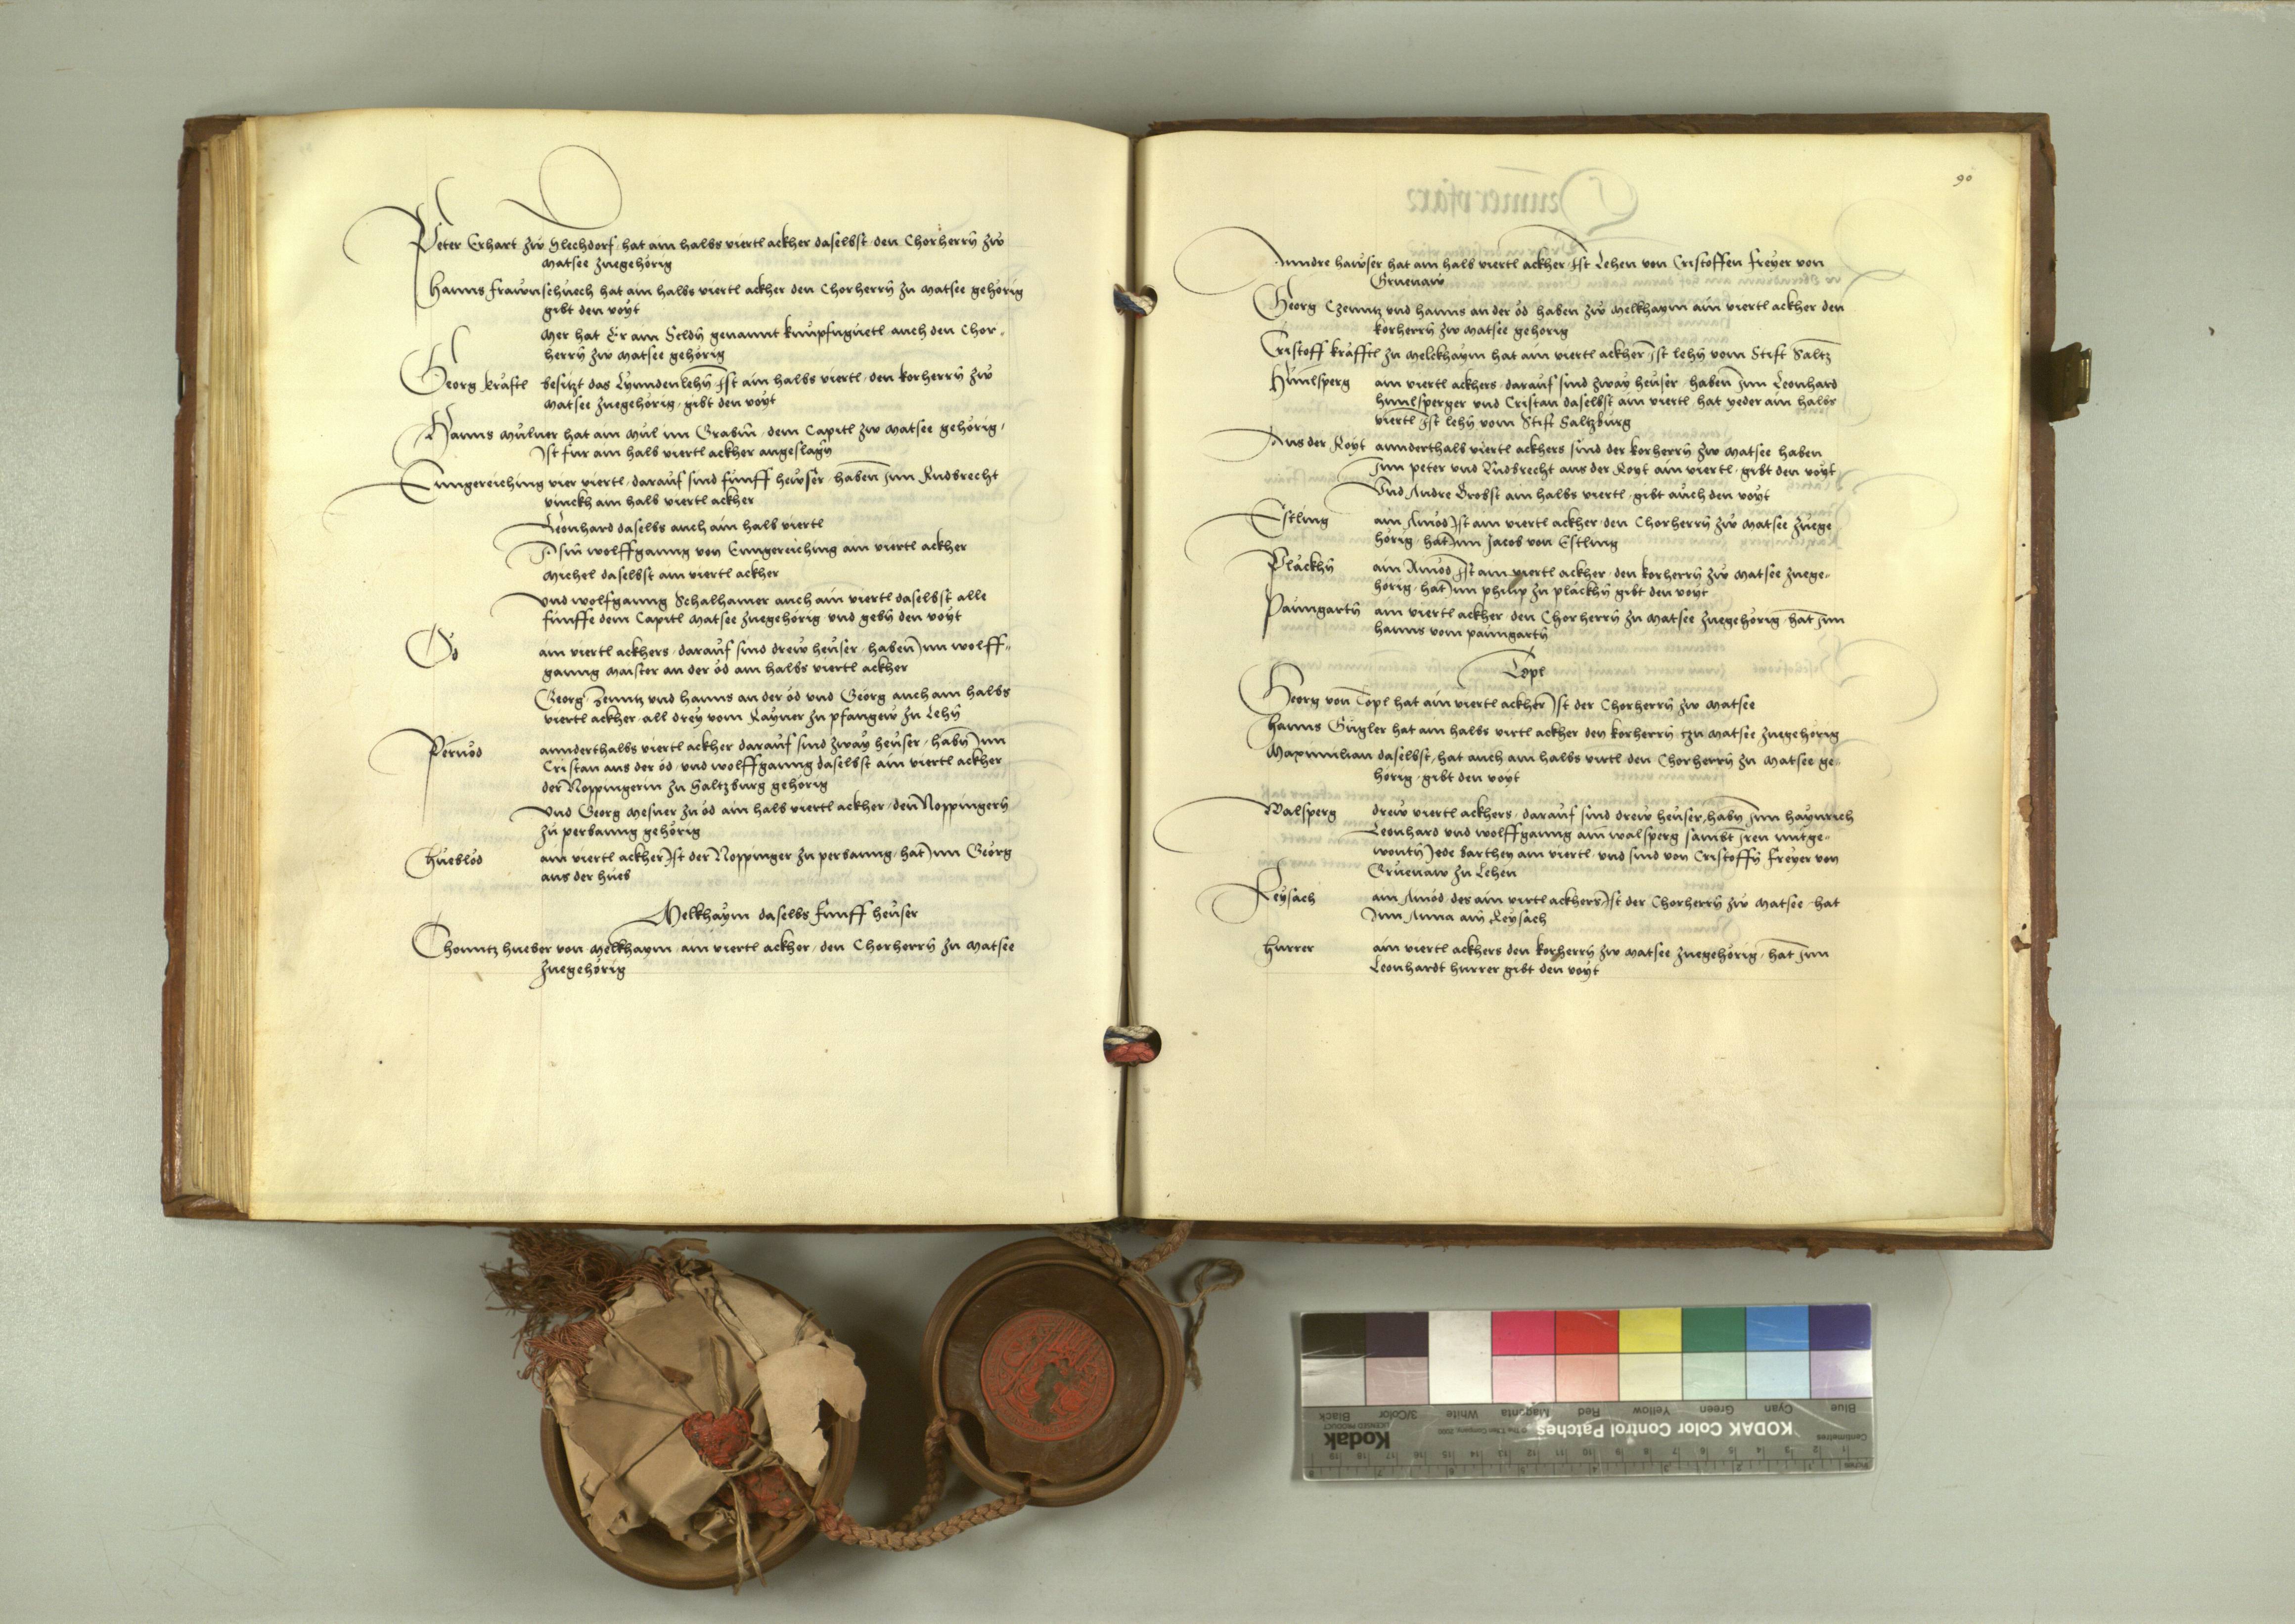 Peter Erhart zw Slechdorf hat ain halbs viertl ackher daselbst den Chorherrn zw
Matsee zuegehörig
Hanns Frawnschuech hat ain halbs viertl ackher den Chorherrn zu Matsee gehörig
gibt den voyt
Mer hat Er ain Seldn genannt knupfnguetl auch den Chor-
herrn zw Matsee gehörig
Georg kräftl besitzt das Lynndenlehn Ist ain halbs viertl den korherrn zw
Matsee zuegehörig gibt den voyt
Hanns Mulner hat ain Mul im Grabm dem Capitl zw Matsee gehörig
Ist fur ain halb viertl ackher angeslagn
Ennngereiching vier viertl darauf sind funff hewser haben Inn Rudbrecht
vinckh ain halb viertl ackher
Leonhard daselbs auch ain halb viertl
wolffganng von Enngereiching ain viertl ackher
Michel daselbst ain viertl ackher
Und wolfganng Schalhamer auch ain viertl daselbst alle
funffe dem Capitl Matsee zuegehörig und gebn den voyt
Öd ain viertl ackhers darauf sind drew hewser haben Inn wolff-
ganng Maister an der öd ain halbs viertl ackher
Georg Zenntz und hanns an der öd und Georg auch ain halbs
viertl ackher all drey vom Rayner zu pfangew zu Lehn
Pernöd annderthalbs viertl ackher darauf sind zway hewser habn Inn
Cristan aus der öd und wolffganng daselbst ain viertl ackher
der Noppingerin zu Saltzburg gehörig
Und Georg Mesner zu öd ain halb viertl ackher den Noppingern
zu perbanng gehörig
Hueblöd ain viertl ackher Ist der Noppinger zu perbanng hat Inn Georg
aus der hueb
Melkhaym daselbs funff hewser
Chonntz hueber von Melkhaym ain viertl ackher den Chorherrn zu Matsee
zuegehörig
90
Anndre hawser hat ain halb viertl ackher Ist Lehen von Cristoffen freyer von
Gruenaw
Georg Czenntz und hanns an der öd haben zw Melkhaym ain viertl ackher den
korherrn zw Matsee gehörig
Cristoff kräfftl zu Melckhaym hat ain viertl ackher Ist lehn vom Stift Saltz
Hunlsperg ain viertl ackhers darauf sind zway hewser haben Inn Leonhard
hunlsperger und Cristan daselbst ain viertl hat yeder ain halbs
viertl Ist lehn vom Stift Saltzburg
Aus der Royt annderthalb viertl ackhers sind der korherrn zw Matsee haben
Inn peter und Rudbrecht aus der Royt ain viertl gibt den voyt
Und Andre Brobst ain halbs viertl gibt auch den voyt
Estling ain Ainöd Ist ain viertl ackher den Chorherrn zw Matsee zuege
hörig hat Inn Jacob von Estling
Pläckhn ain Ainöd Ist ain viertl ackher den korherrn zw Matsee zuege-
hörig hat Inn philip zu pläckhn gibt den voyt
Paumgartn ain viertl ackher den Chorherrn zu Matsee zuegehörig hat Inn
hanns vom paumgartn
Töpl
Georg von Töpl hat ain viertl ackher Ist der Chorherrn zw Matsee
Hanns Gugler hat ain halbs virtl ackher den korherrn tzu Matsee zuegehörig
Maximilian daselbst hat auch ain halbs virtl den Chorherrn zu Matsee ge-
hörig gibt den voyt
Walsperg drew viertl ackhers darauf sind drew hewser habn Inn haynrich
Leonhard und wolffganng am walsperg sambt Iren mitge-
wontn Jede barthey ain viertl und sind von Cristoffn freyer von
Gruenaw zu Lehen
Reysach ain Ainöd des ain virtl ackhers Ist der Chorherrn zw Matsee hat
Inn Anna am Reysach
Hurrer ain viertl ackhers den korherrn zw Matsee zuegehörig hat Inn
Leonhardt hurrer gibt den voyt
KODAK Color Control Patches
Kodak
LICENSED PRODUCT
Blue
Cyan
Green
Yellow
Red
Magenta
White
3/Color
Black
Centimetres
Inches